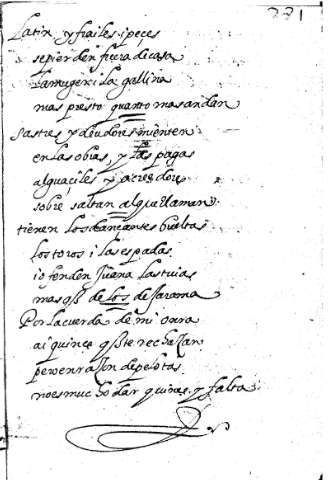 221
Latin, y frailes i peçes
se pierden fuera de casa
la muger i la gallina
mas presto quanto mas andan
Sastres y deudores mienten
en las obras, y las pagas
alguaciles y acreedores
sobre saltan al que llaman
tienen los dançantes bueltas
los toros i las espadas.
i ofenden Juana las tuias
mas q̃ de los de Jarama
Por la cuerda de mi
ai quince q̃ te rechaçan
pero en raçon de pelotas.
no es mucho dar quince, y falta.